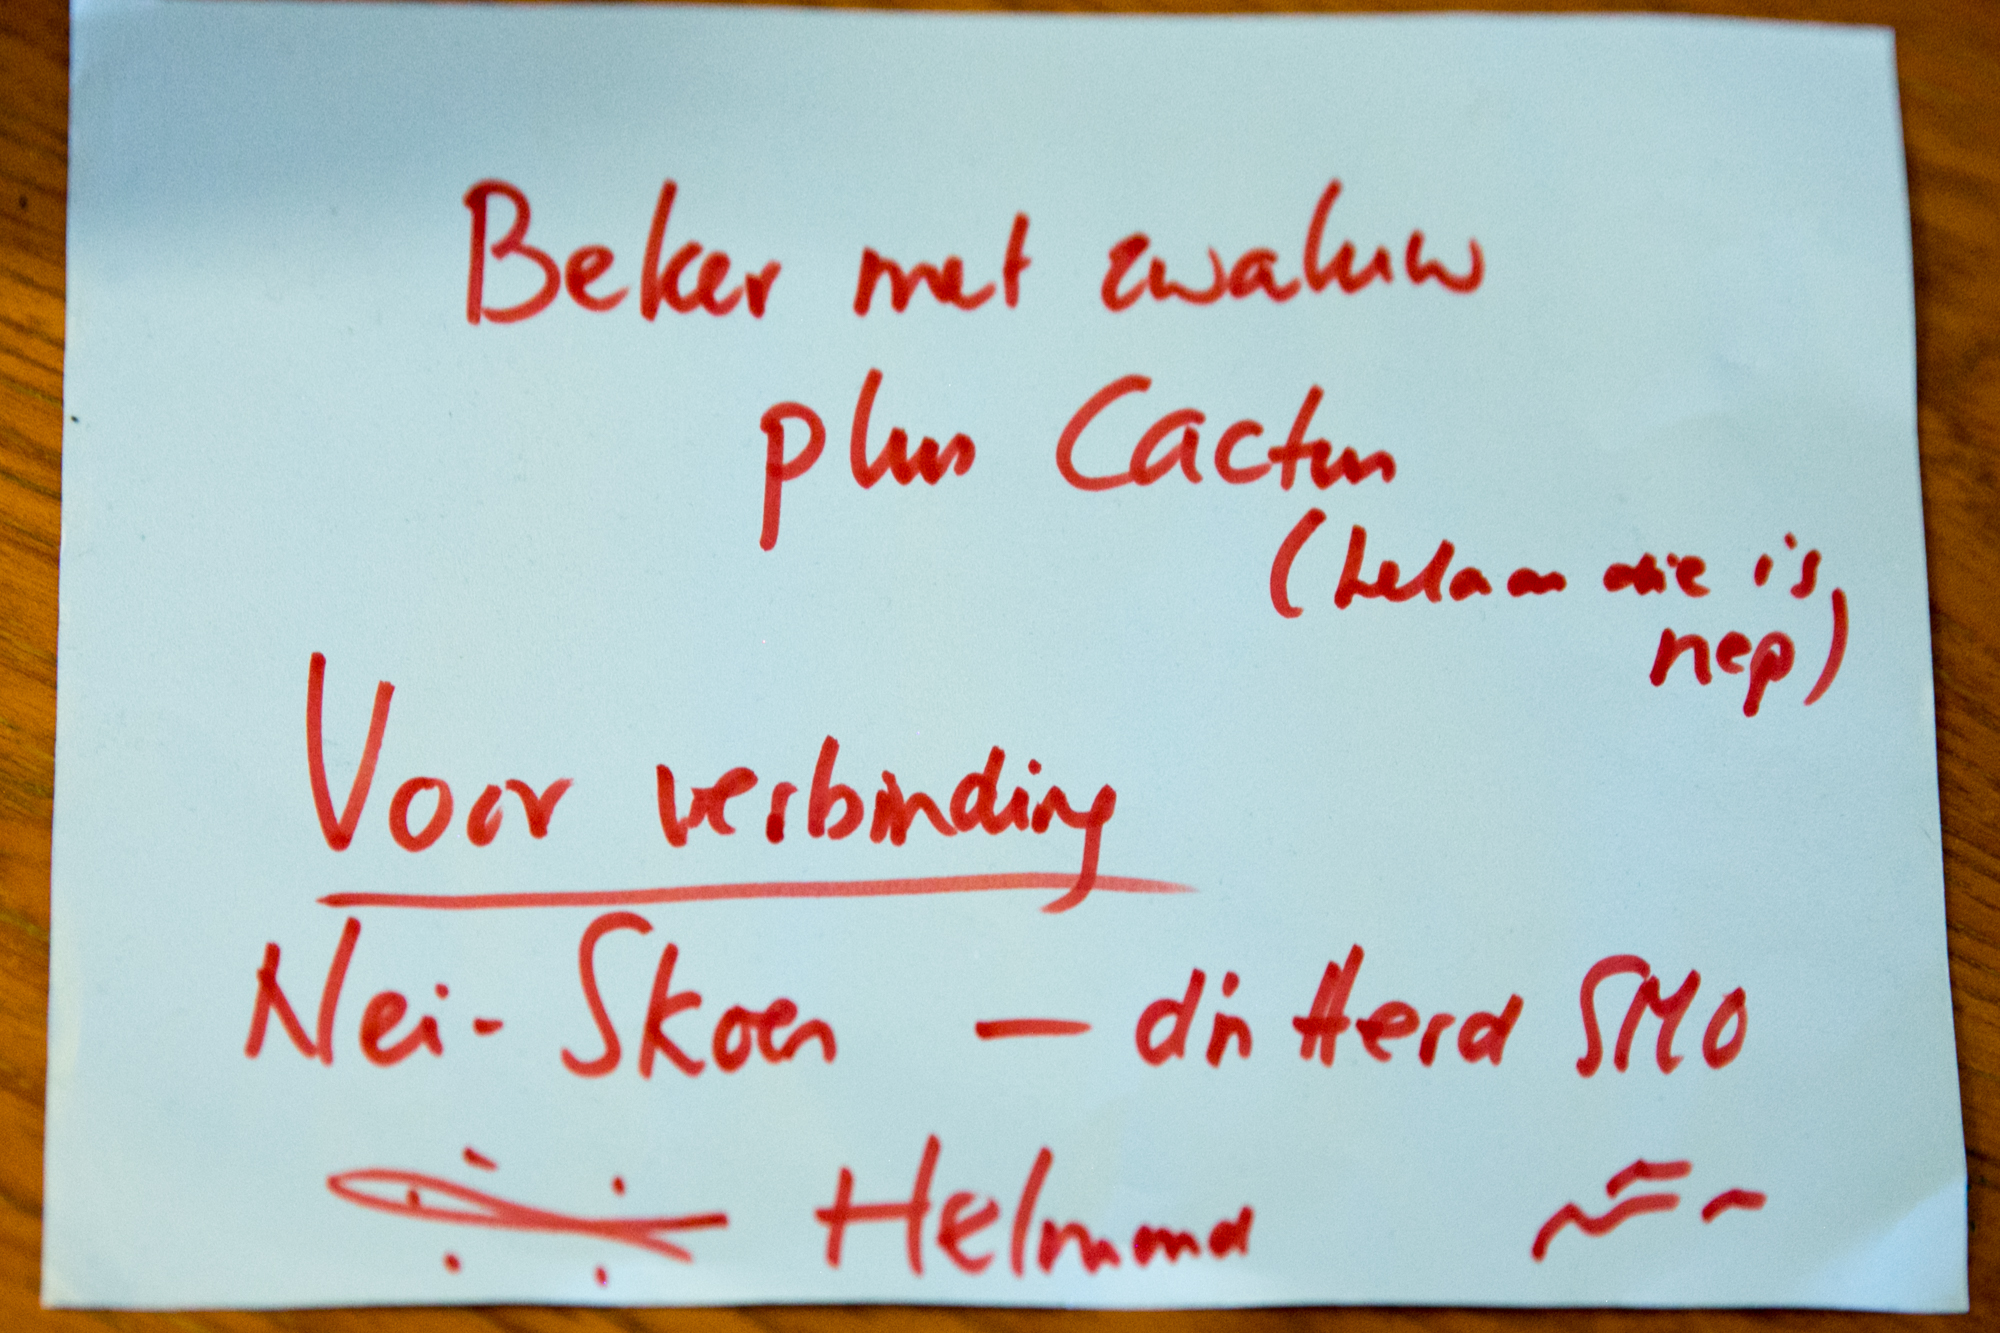 Beker met zwaluw
plus Cactus
(helaas die is
nep)
Voor verbinding
Nei-Skoen - d'n Herd SMO
Helmond